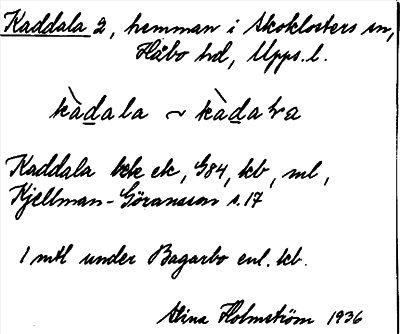 Kaddala 2, hemman i Skoklosters sn,
Håbo hd, Upps.l.
kàdala ~ kàdaɽa
Kaddala bek ek, G84, kb, ml,
Kjellman-Göranson s.17
1 mtl under Bagarbo enl. kb.
Stina Holmström 1936